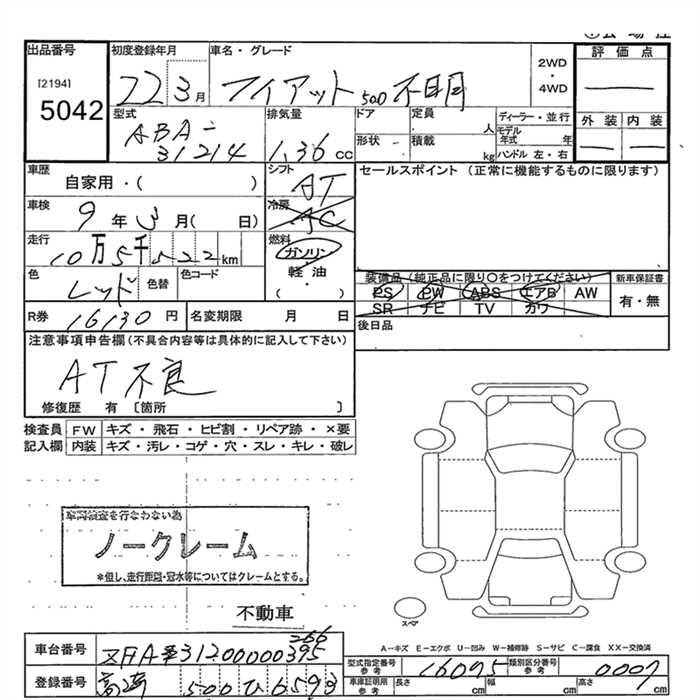 出品番号
[2194]
5042
初度登録年月
22 3月
車名・グレード
フィアット500 不明
2WD
・
4WD
評価点
外装 内装
型式
ABA-
31214
排気量
1.36 cc
ドア
定員
人
形状 -
積載
kg
ディーラー・並行
モデル年式 年
ハンドル 左・右
車歴
自家用・( )
シフト
AT
セールスポイント (正常に機能するものに限ります)
車検
9年3月( 日)
冷房
AC
走行
10万5千522km
燃料
ガソリン
軽油
・
( )
色
レッド
色替
色コード
装備品(純正品に限り○をつけてください)
PS PW ABS エアB AW
SR ナビ TV カワ
新車保証書
有・無
R券 16130円
名変期限 月 日
後日品
注意事項申告欄(不具合内容等は具体的に記入して下さい)
AT不良
修復歴 有 〔箇所 〕
検査員
記入欄
FW キズ・飛石・ヒビ割・リペア跡・×要
内装 キズ・汚レ・コゲ・穴・スレ・キレ・破レ
車両検査を行なわない為
ノークレーム
*但し、走行距離・冠水等についてはクレームとする。
不動車
スペア
A-キズ E-エクボ U-凹み W-補修跡 S-サビ C-腐食 XX-交換済
車台番号
266
31200000395
型式指定番号
参考
16095
類別区分番号
参考
0007
登録番号
500 ひ 6593
車庫証明用
参考
長さ cm
幅 cm
高さ cm